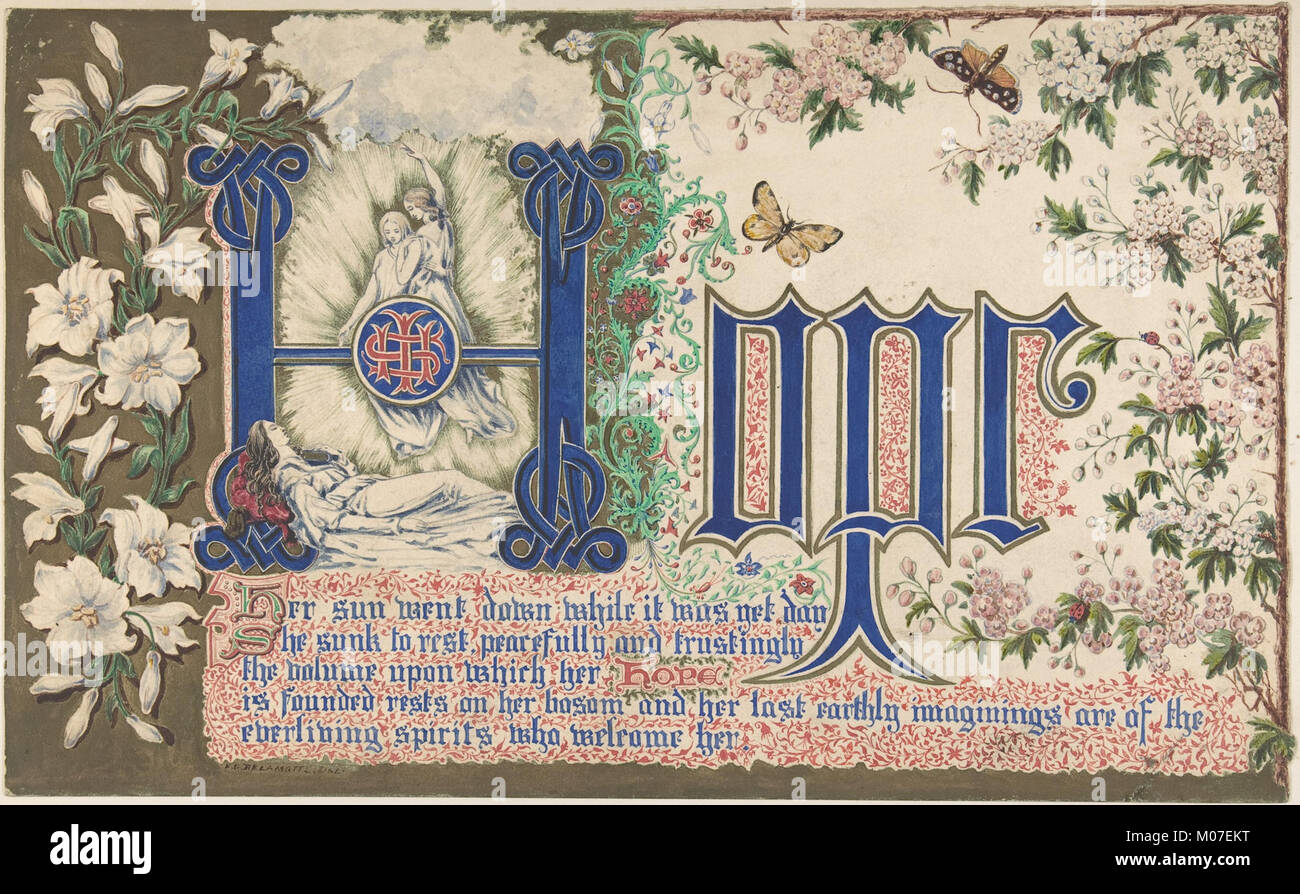 Hope
IHS
Her sun went down while it was yet day
She sunk to rest, peacefully and trustingly
the volume upon which her hope
is founded rests on her bosom and her last earthly imaginings are of the
everliving spirits who welcome her.
DELAMOTTE, DEL.
alamy
alamy
Image ID: M07EKT
www.alamy.com